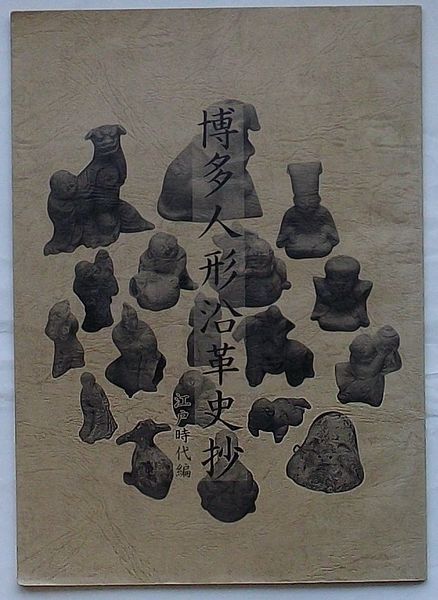 博多人形沿革史抄
江戸時代編